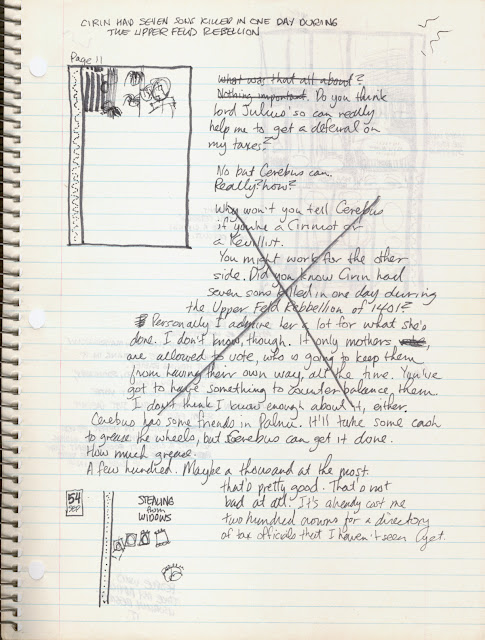 CIRIN HAD SEVEN SONS KILLED IN ONE DAY DURING
THE UPPER FELD REBELLION
Page 11
What was that all about?
Nothing important. Do you think
Lord Julius' so can really
help me to get a deferral on
my taxes?
No but Cerebus can.
Really? how?
Why won't you tell Cerebus
if you're a Cirinist or
a Kevillist.
You might work for the other
side. Did you know Cirin had
seven sons killed in one day during
the Upper Feld Rebbellion of 1401?
Personally I admire her a lot for what she's
done. I don't know, though. If only mothers
are allowed to vote, who is going to keep them
from having their own way, all the time. You've
got to have something to counter balance them.
I don't think I know enough about it, either.
Cerebus has some friends in Palnu. It'll take some cash
to grease the wheels, but Cerebus can get it done.
How much grease.
A few hundred. Maybe a thousand at the most.
that's pretty good. That's not
bad at all. It's already cost me
two hundred crowns for a directory
of tax officials that I haven't seen yet.
54
SEP
STEALING
from
WIDOWS